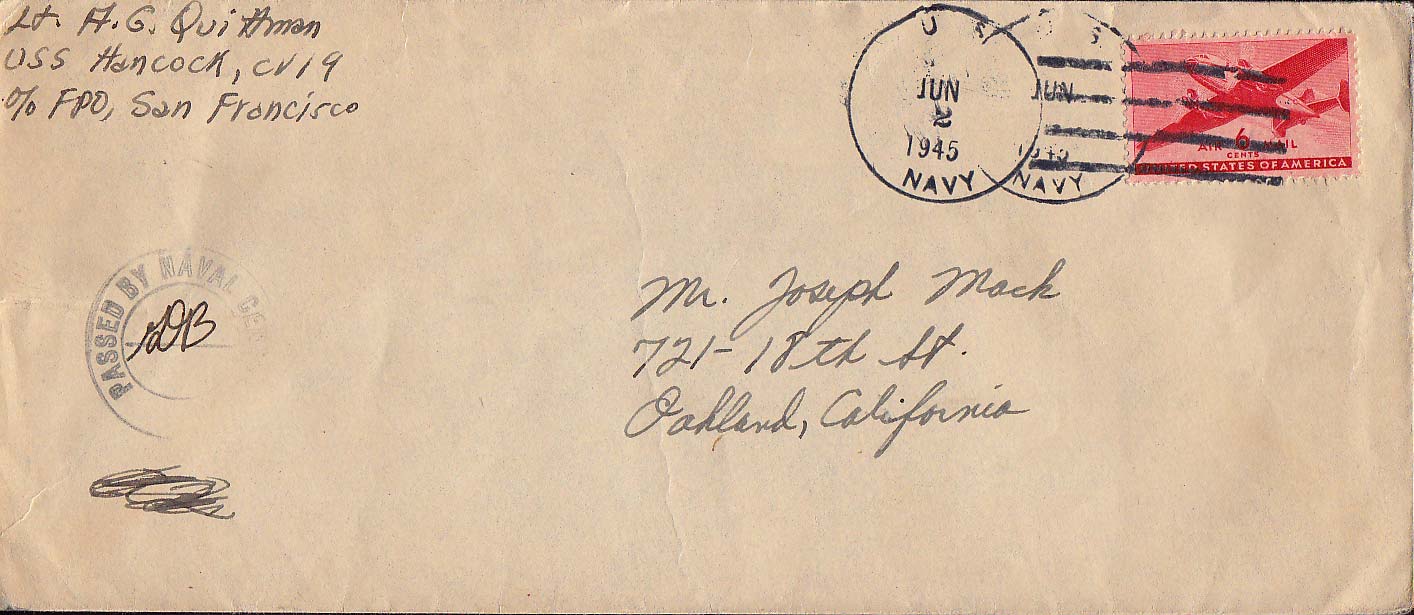 Lt. A.G. Quittman
USS Hancock, CV19
c/o FPO, San Francisco
U S
JUN
2
1945
NAVY
U S
JUN
1945
NAVY
AIR 6 MAIL
CENTS
UNITED STATES OF AMERICA
PASSED BY NAVAL CEN
Mr. Joseph Mack
721-18th St.
Oakland, California